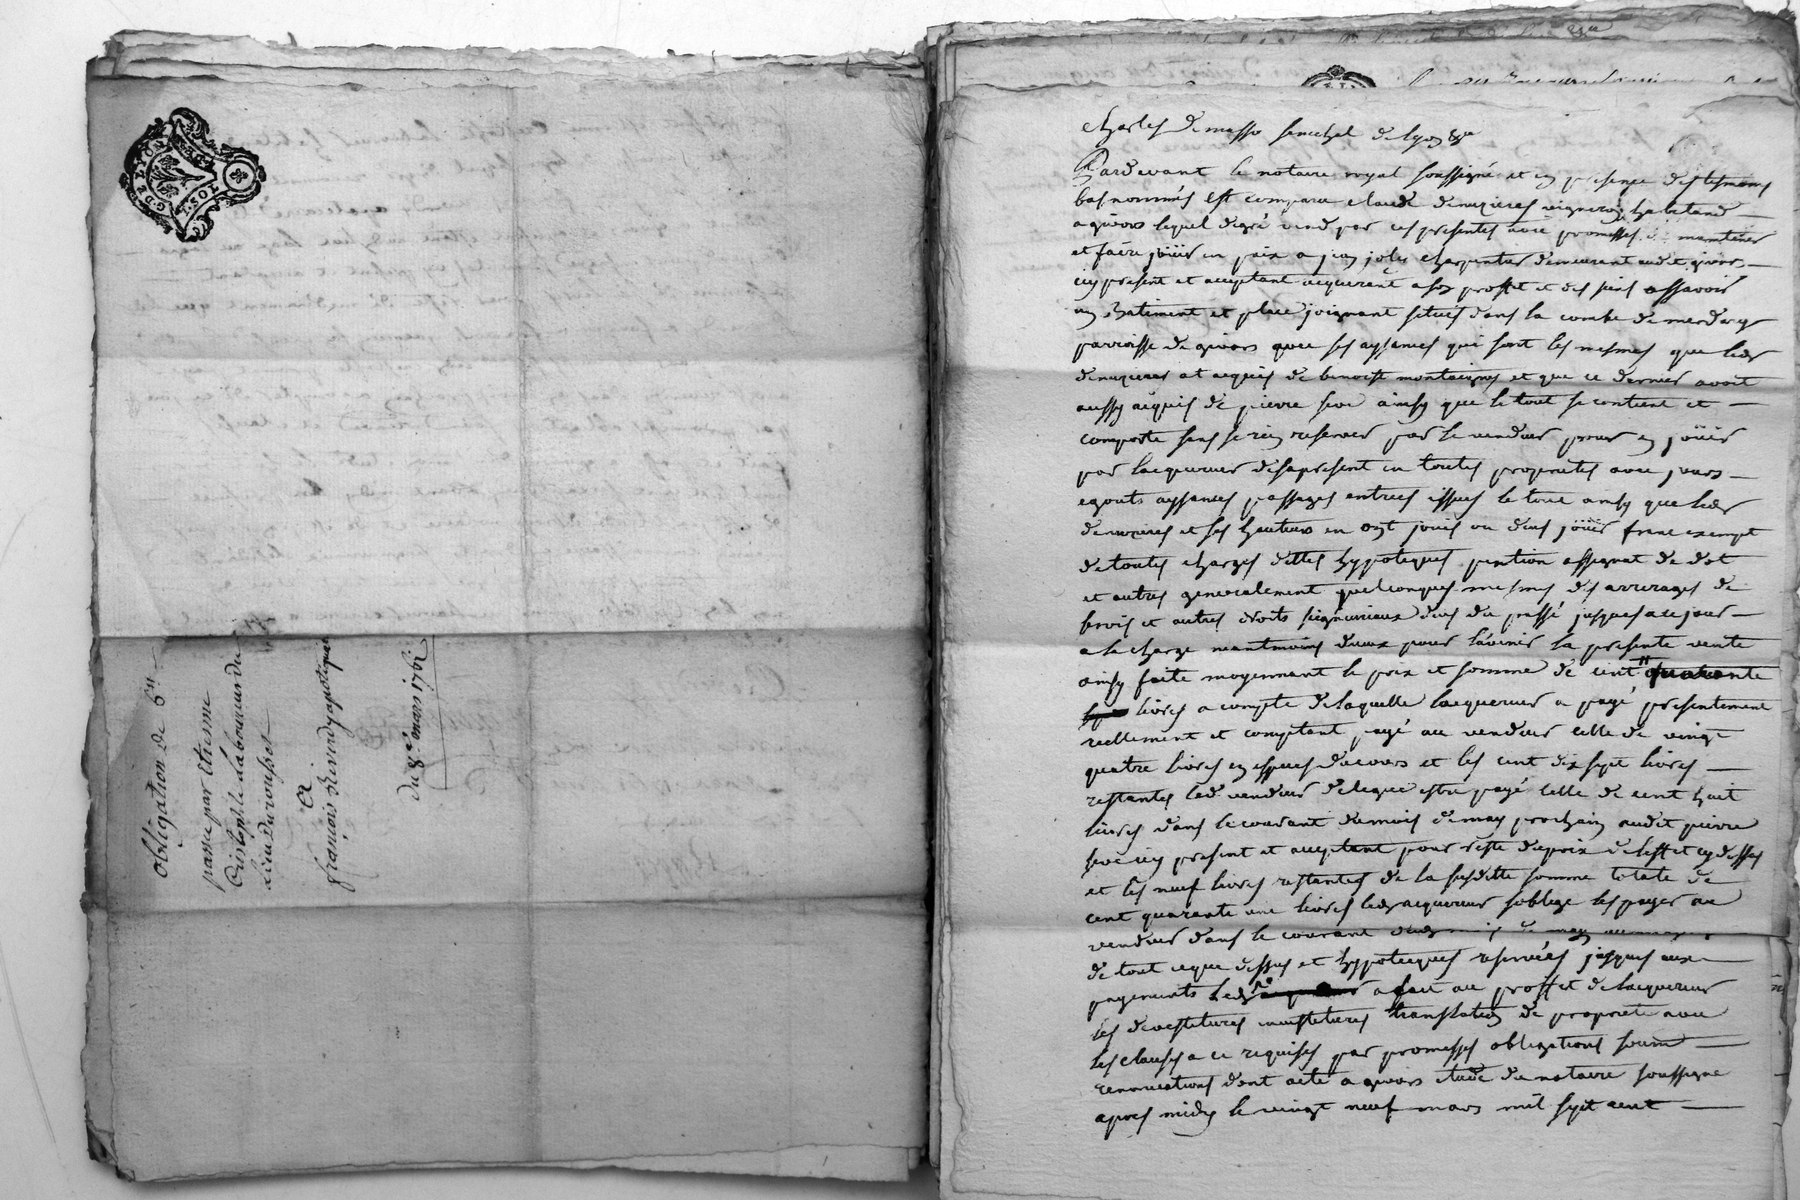 G. DE LYON
obligation de 6#
passée par Etienne
Cristophle laboureur du
Lieu du rousset
a
françois Reinndy apotiquaire
du 8e mars 1761
charles de masso senechal de lyon &a
Pardevant le notaire royal soussigné et en presence des tesmoins
bas nommés est comparu claude denuzieres vigneron habitand
a givors lequel de gré vend par ces presentes avec promesses de maintenir
et faire joüir en paix a jean charpentier demeurant audit givors
icy present et acceptant acquerant a son proffit et des siens assavoir
un batiment et place joignant situés dans la combe de merdary
parroisse de givors avec ses aysances qui sont les mesmes que led
denuzieres at acquis de benoist montaignes et que ce dernier avoit
aussy acquis de pierre seve ainsy que le tout se contient et
comporte sans se rien reserver par le vendeur pour en joüir
par lacquereur des apresent en toutes proprietes avec jours
egouts aysances passages entrees issues le tout ainsy que led
denuzieres et ses hauteurs en ont jouis ou deus joüir franc exempt
de toutes charges dettes hypoteques pention assignat de dot
et autres generalement quelconques mesmes des arrerages de
servis et autres droits seigneuriaux deus du passé jusques a ce jour
a la charge neantmoins diceux pour lavenir la presente vente
ainsy faite moyennant le prix et somme de cent quarante
livres a compte de laquelle lacquereur a payé presentement
reellement et comptant payé au vendeur celle de vingt
quatre livres en especes du cours et les cent dix sept livres
restantes led vendeur delegue estre payé celle de cent huit
livres dans le courant du mois de may prochain audit pierre
seve icy present et acceptant pour reste du prix de lestt et cy dessus
et les neuf livres restantes de la susditte somme totale de
cent quarante une livres led acquereur soblige les payer au
vendeur dans le courant dud mois de may
de tout ceque dessus et hypotecques reservées jusques aux
payements led a fait au proffit de lacquereur
les devestitures investitures translation de propriete avec
les clauses a ce requises par promesses obligations soum
renonciations dont acte a givors etude du notaire soussigne
apres midy le vingt neuf mars mil sept cent